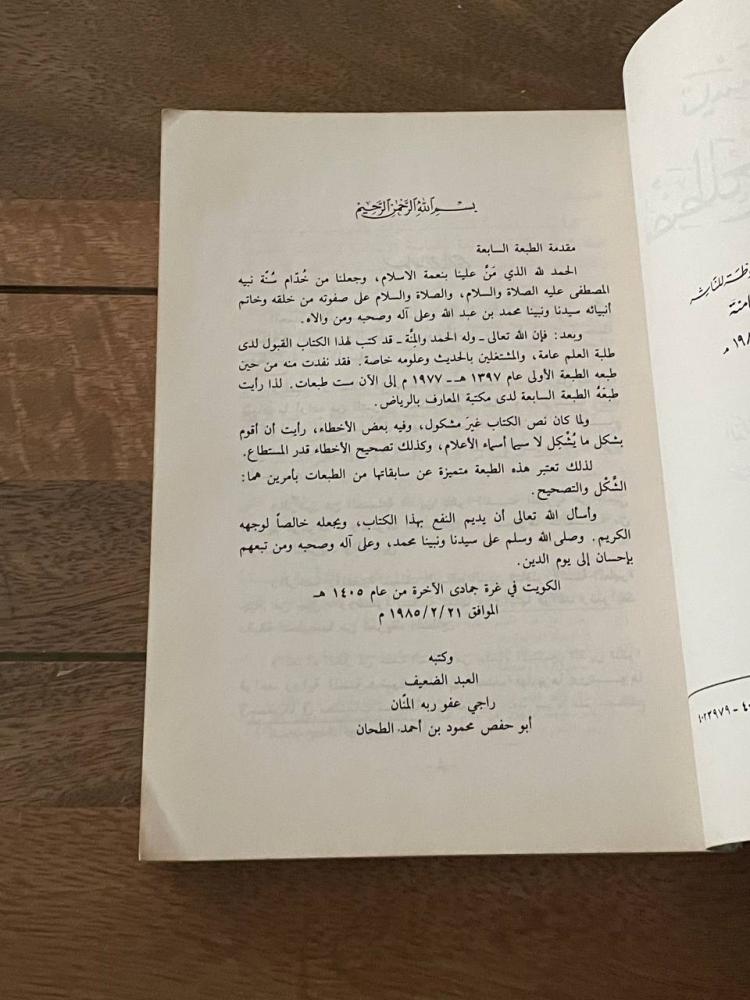 بسم الله الرحمن الرحيم
مقدمة الطبعة السابعة
الحمد لله الذي مَنَّ علينا بنعمة الاسلام، وجعلنا من خُدّام سُنّة نبيه
المصطفى عليه الصلاة والسلام، والصلاة والسلام على صفوته من خلقه وخاتم
أنبيائه سيدنا ونبينا محمد بن عبد الله وعلى آله وصحبه ومن والاه.
وبعد: فإن الله تعالى ـ وله الحمد والمنّة ـ قد كتب لهذا الكتاب القبول لدى
طلبة العلم عامة، والمشتغلين بالحديث وعلومه خاصة. فقد نفدت منه من حين
طبعه الطبعة الأولى عام ١٣٩٧ هـ ـ ١٩٧٧ م إلى الآن ست طبعات. لذا رأيت
طبعَهُ الطبعة السابعة لدى مكتبة المعارف بالرياض.
ولما كان نص الكتاب غيرَ مشكول، وفيه بعض الأخطاء، رأيت أن أقوم
بشكل ما يُشْكِل لا سيما أسماء الأعلام، وكذلك تصحيح الأخطاء قدر المستطاع.
لذلك تعتبر هذه الطبعة متميزة عن سابقاتها من الطبعات بأمرين هما:
الشَّكْل والتصحيح.
وأسأل الله تعالى أن يديم النفع بهذا الكتاب، ويجعله خالصاً لوجهه
الكريم. وصلى الله وسلم على سيدنا ونبينا محمد، وعلى آله وصحبه ومن تبعهم
بإحسان إلى يوم الدين.
الكويت في غرة جمادى الآخرة من عام ١٤٠٥ هـ
الموافق ١٩٨٥/٢/٢١ م
وكتبه
العبد الضعيف
راجي عفو ربه المنّان
أبو حفص محمود بن أحمد الطحان